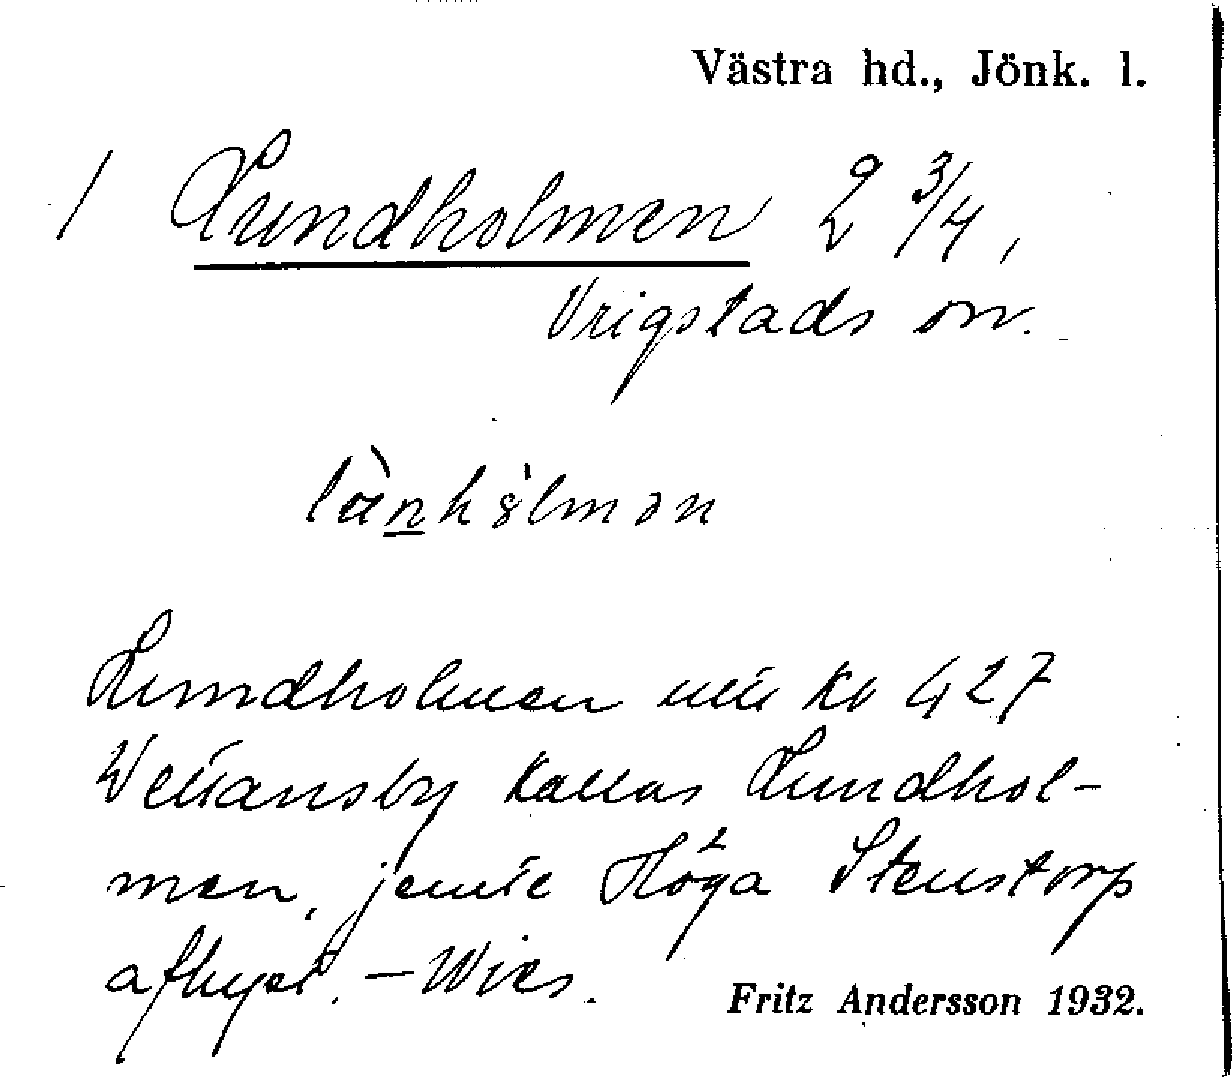 Västra hd., Jönk. l.
/ Lundholmen 2 3/4,
Vrigstads sn.
Lundholmen
kallas Lundhol-
men, jemte Höga Stenstorp
afhyst. – Wies.
Fritz Andersson 1932.